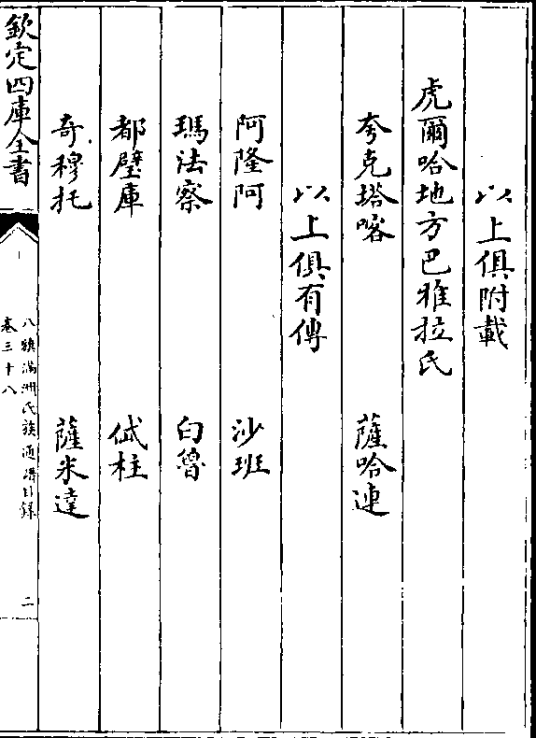 以上俱附載
虎爾哈地方巴雅拉氏
夸克塔喀 薩哈連
以上俱有傳
阿隆阿 沙班
瑪法察 白魯
都璧庫 佉柱
奇穆托 薩米達
欽定四庫全書
八旗滿洲氏族通譜目錄
卷三十八
二